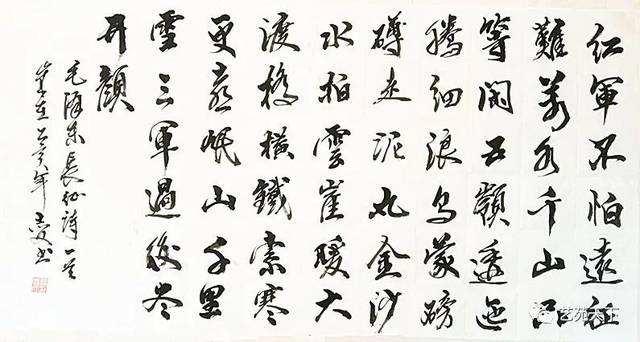 红軍不怕遠征
難萬水千山只
等閑五嶺逶迤
騰細浪烏蒙磅
礴走泥丸金沙
水拍雲崖暖大
渡橋橫鐵索寒
更喜岷山千里
雪三軍過後尽
開顏
毛澤东長征詩一首
歲在己亥年 书